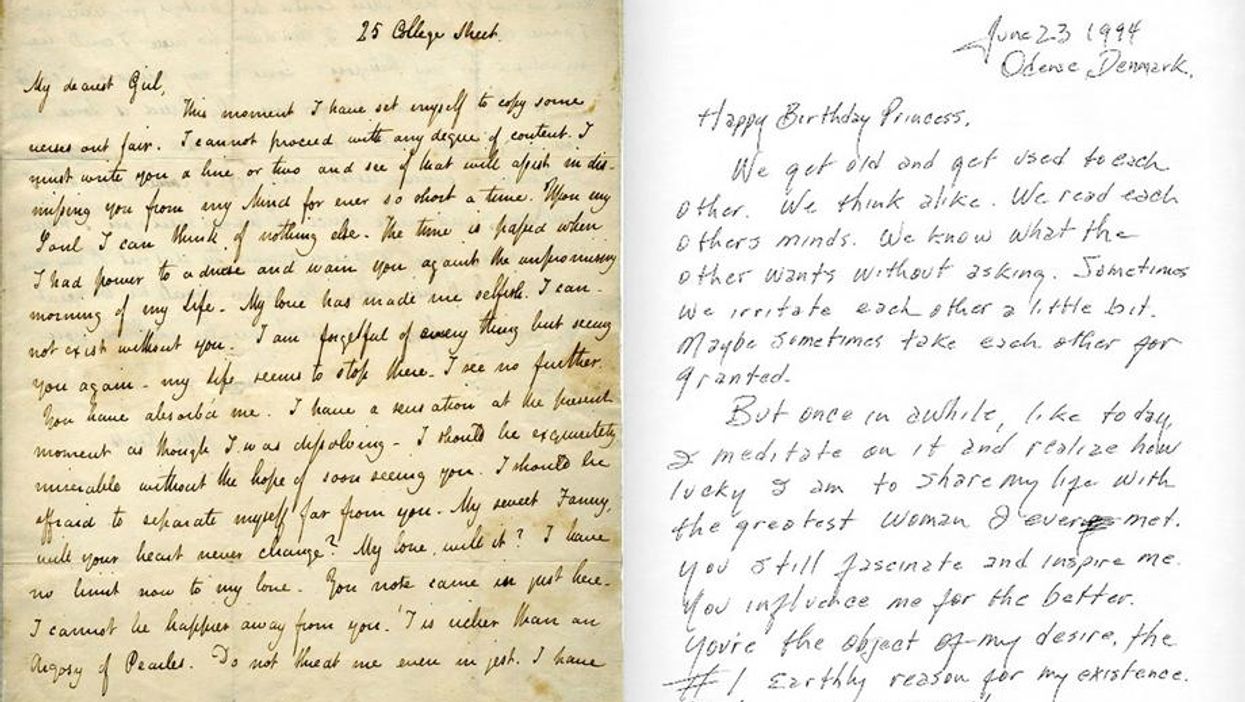 25 College Street.
My dearest Girl,
This moment I have set myself to copy some
verses out fair. I cannot proceed with any degree of content. I
must write you a line or two and see if that will assist in dis-
missing you from my Mind for ever so short a time. Upon my
Soul I can think of nothing else. The time is passed when
I had power to advise and warn you against the unpromising
morning of my Life. My love has made me selfish. I can-
not exist without you. I am forgetful of every thing but seeing
you again - my Life seems to stop there - I see no further.
You have absorb'd me. I have a sensation at the present
moment as though I was dissolving - I should be exquisitely
miserable without the hope of soon seeing you. I should be
affraid to separate myself far from you. My sweet Fanny,
will your heart never change? My love, will it? I have
no limit now to my love - You note came in just here -
I cannot be happier away from you. 'T is richer than an
Argosy of Pearles. Do not threat me even in jest. I have
June 23 1994
Odense, Denmark.
Happy Birthday Princess,
We get old and get used to each
other. We think alike. We read each
others minds. We know what the
other wants without asking. Sometimes
we irritate each other a little bit.
Maybe sometimes take each other for
granted.
But once in awhile, like today,
I meditate on it and realize how
lucky I am to share my life with
the greatest woman I ever met.
You still fascinate and inspire me.
You influence me for the better.
You're the object of my desire, the
#1 Earthly reason for my existence.